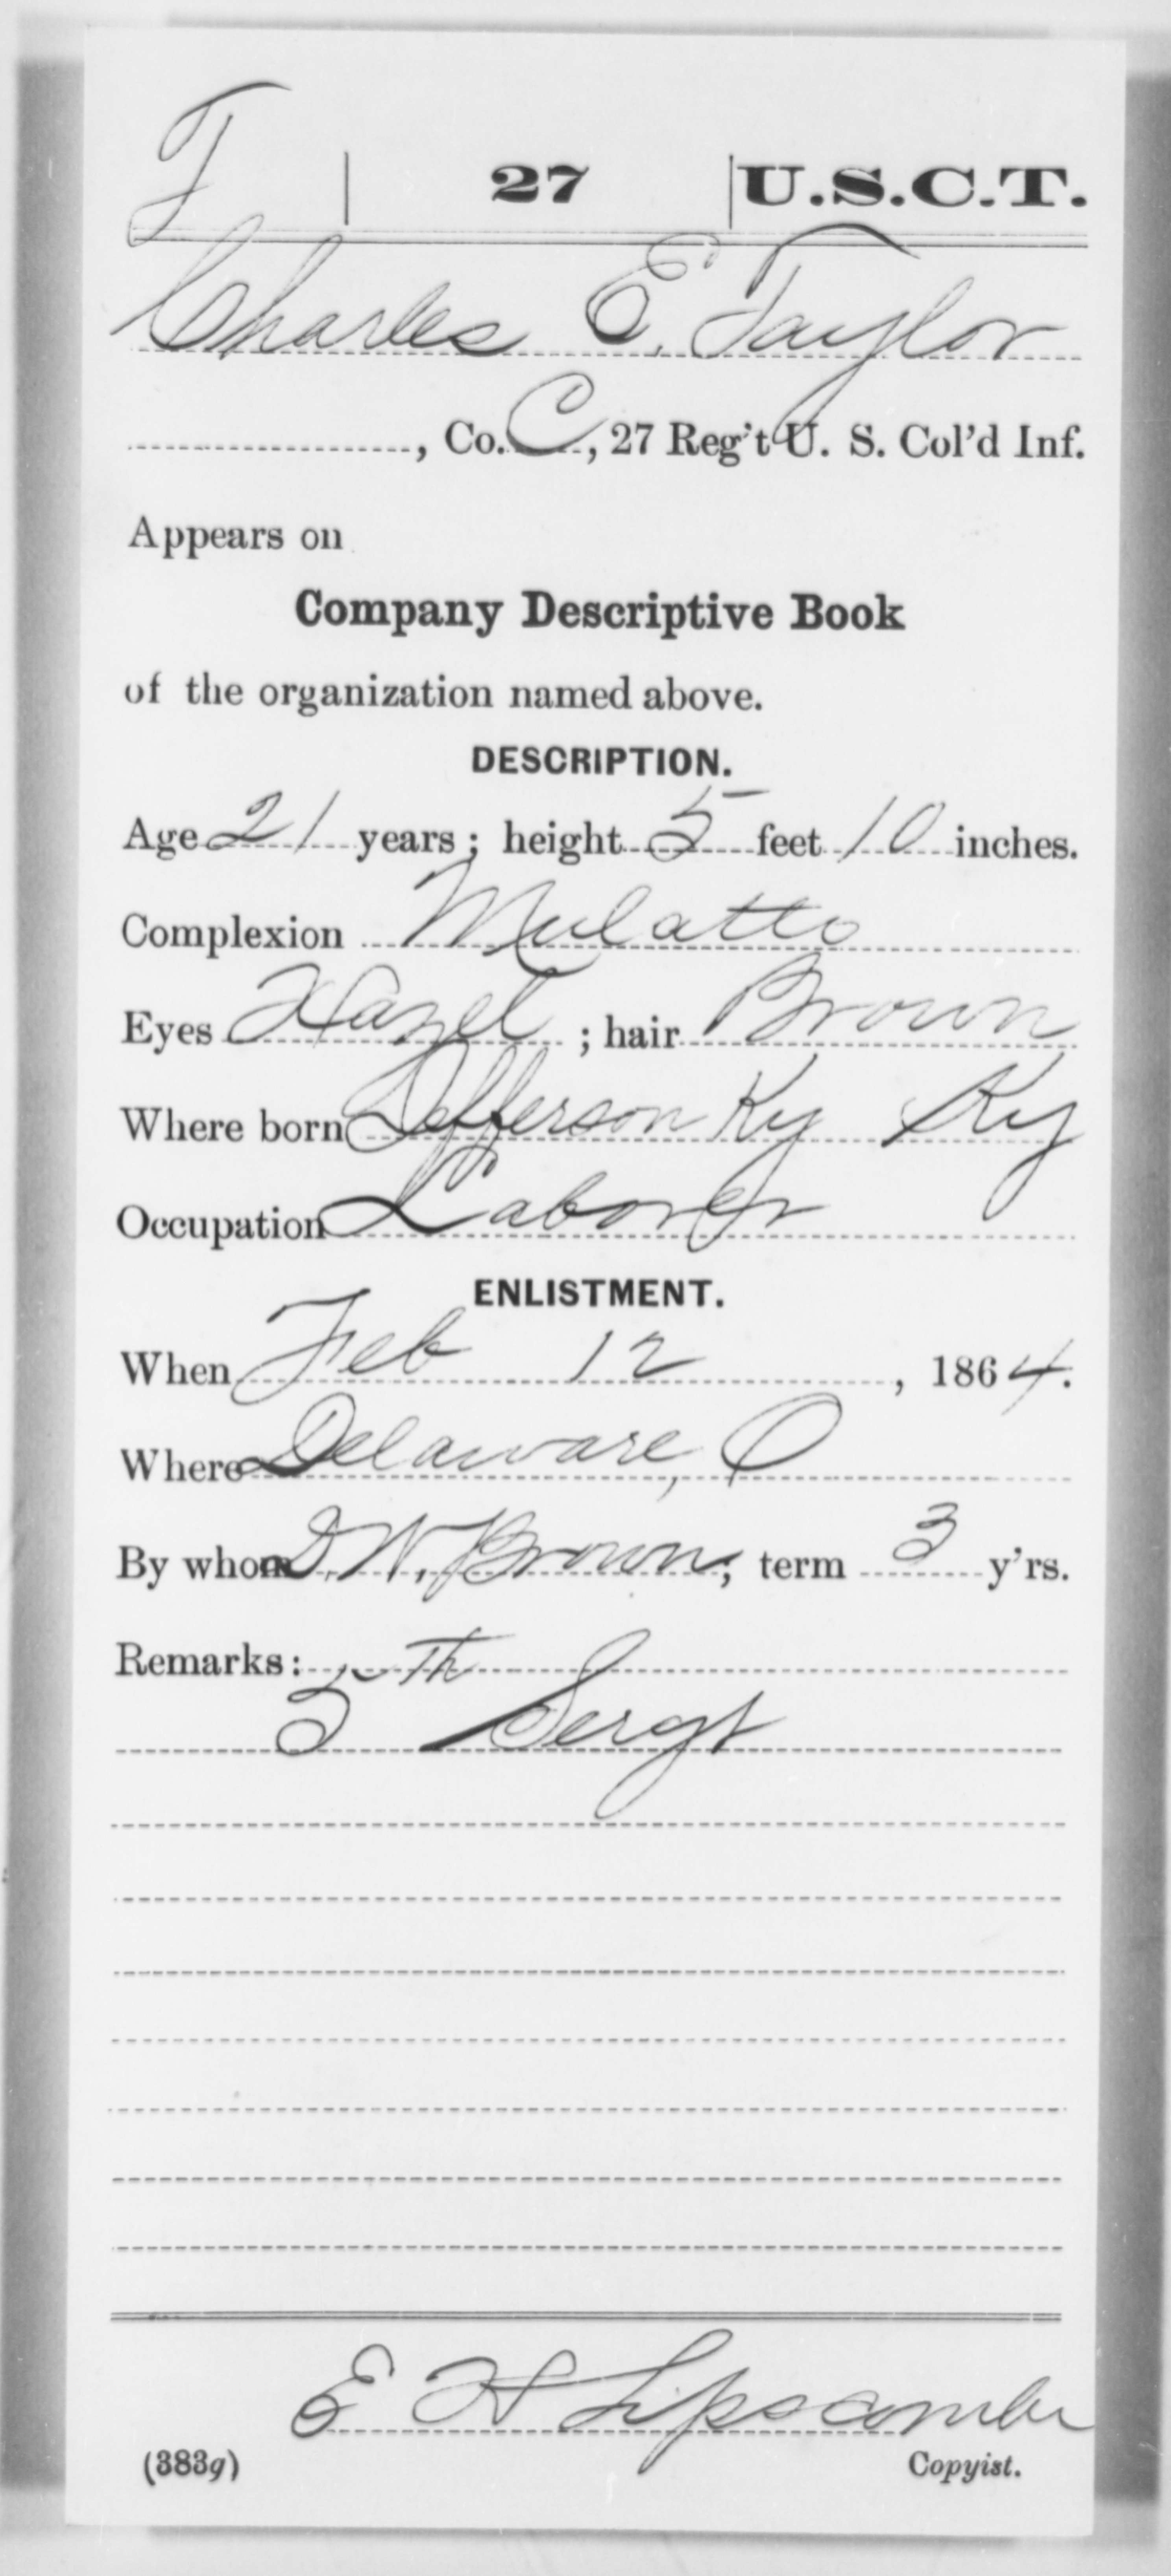 T | 27 | U.S.C.T.
Charles E. Taylor
, Co. C, 27 Reg't U. S. Col'd Inf.
Appears on
Company Descriptive Book
of the organization named above.
DESCRIPTION.
Age 21 years; height 5 feet 10 inches.
Complexion Mulatto
Eyes Hazel; hair Brown
Where born Jefferson Ky Ky
Occupation Laborer
ENLISTMENT.
When Feb 12, 1864.
Where Delaware, O
By whom D. W. Brown; term 3 y'rs.
Remarks:
5th Sergt
E H Lipscombe
(383g) Copyist.